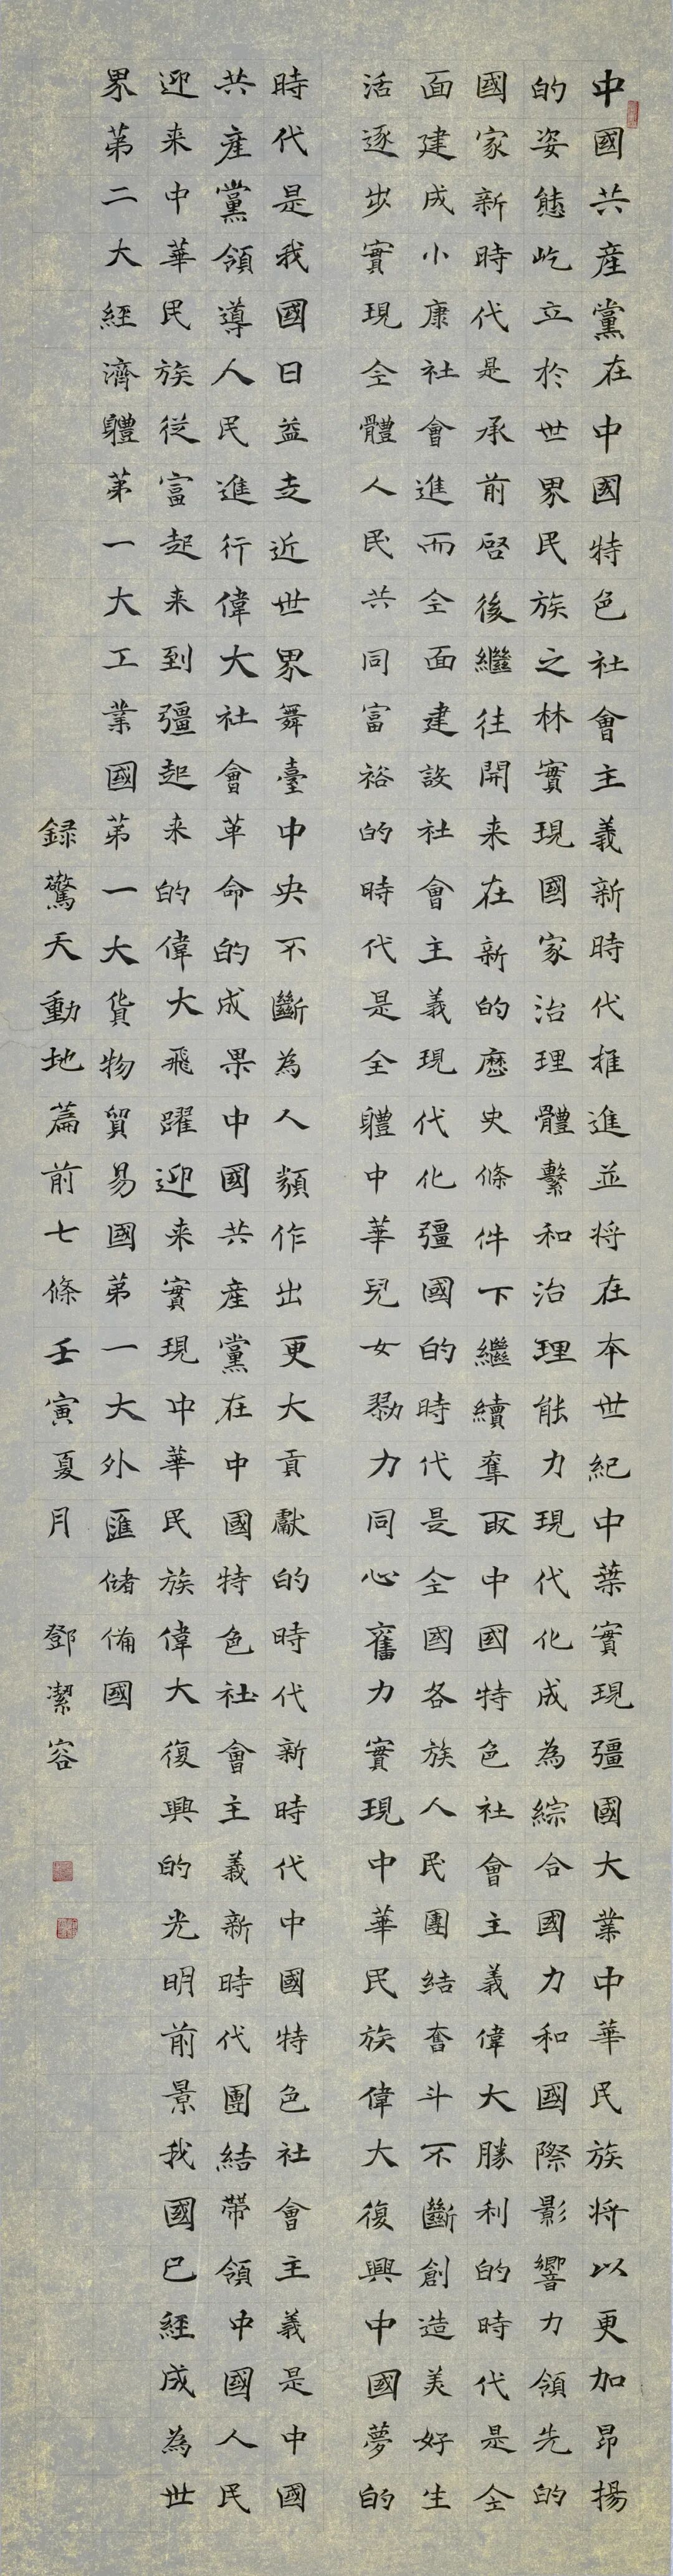 中國共産黨在中國特色社會主義新時代推進並将在本世紀中葉實現彊國大業中華民族将以更加昂揚
的姿態屹立於世界民族之林實現國家治理體繫和治理能力現代化成為綜合國力和國際影響力領先的
國家新時代是承前啓後繼往開来在新的歷史條件下繼續奪取中國特色社會主義偉大勝利的時代是全
面建成小康社會進而全面建設社會主義現代化彊國的時代是全國各族人民團結奮斗不斷創造美好生
活逐步實現全體人民共同富裕的時代是全軆中華兒女勠力同心奮力實現中華民族偉大復興中國夢的
時代是我國日益走近世界舞臺中央不斷為人類作出更大貢獻的時代新時代中國特色社會主義是中國
共産黨領導人民進行偉大社會革命的成果中國共産黨在中國特色社會主義新時代團結帶領中國人民
迎来中華民族從富起来到彊起来的偉大飛躍迎来實現中華民族偉大復興的光明前景我國已經成為世
界第二大經濟軆第一大工業國第一大貨物貿易國第一大外匯儲備國
録驚天動地篇前七條壬寅夏月 鄧潔容